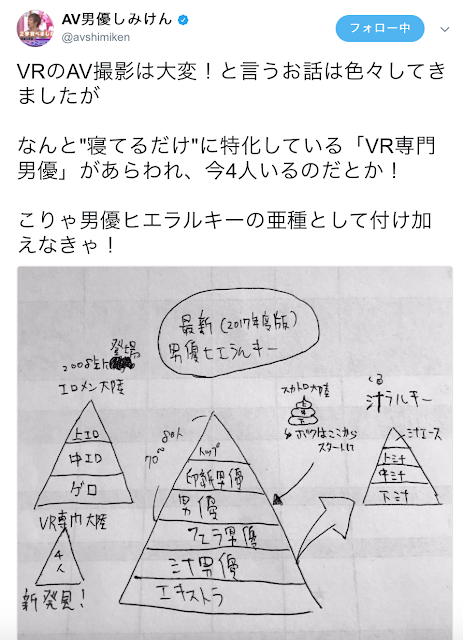 AV男優しみけん
@avshimiken
フォロー中
VRのAV撮影は大変！と言うお話は色々してき
ましたが
なんと"寝てるだけ"に特化している「VR専門
男優」があらわれ、今4人いるのだとか！
こりゃ男優ヒエラルキーの亜種として付け加
えなきゃ！
最新(2017年度版)
男優ヒエラルキー
2008年に登場
エロメン大陸
上エロ
中エロ
ゲロ
VR専門大陸
4人
新発見！
70〜80人
トップ
印紙男優
男優
フェラ男優
汁男優
エキストラ
スカトロ大陸
上
中
下
ボクはここから
スタートして
しる
汁ラルキー
汁エース
上汁
中汁
下汁